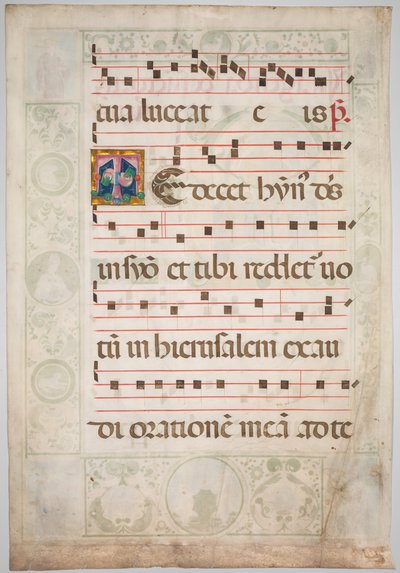 tua luceat e is p̄.
TE decet hȳn⁹ ds̄
in syō et tibi reddet᷑ uo
tū in hierusalem exau
di orationē meā ad te